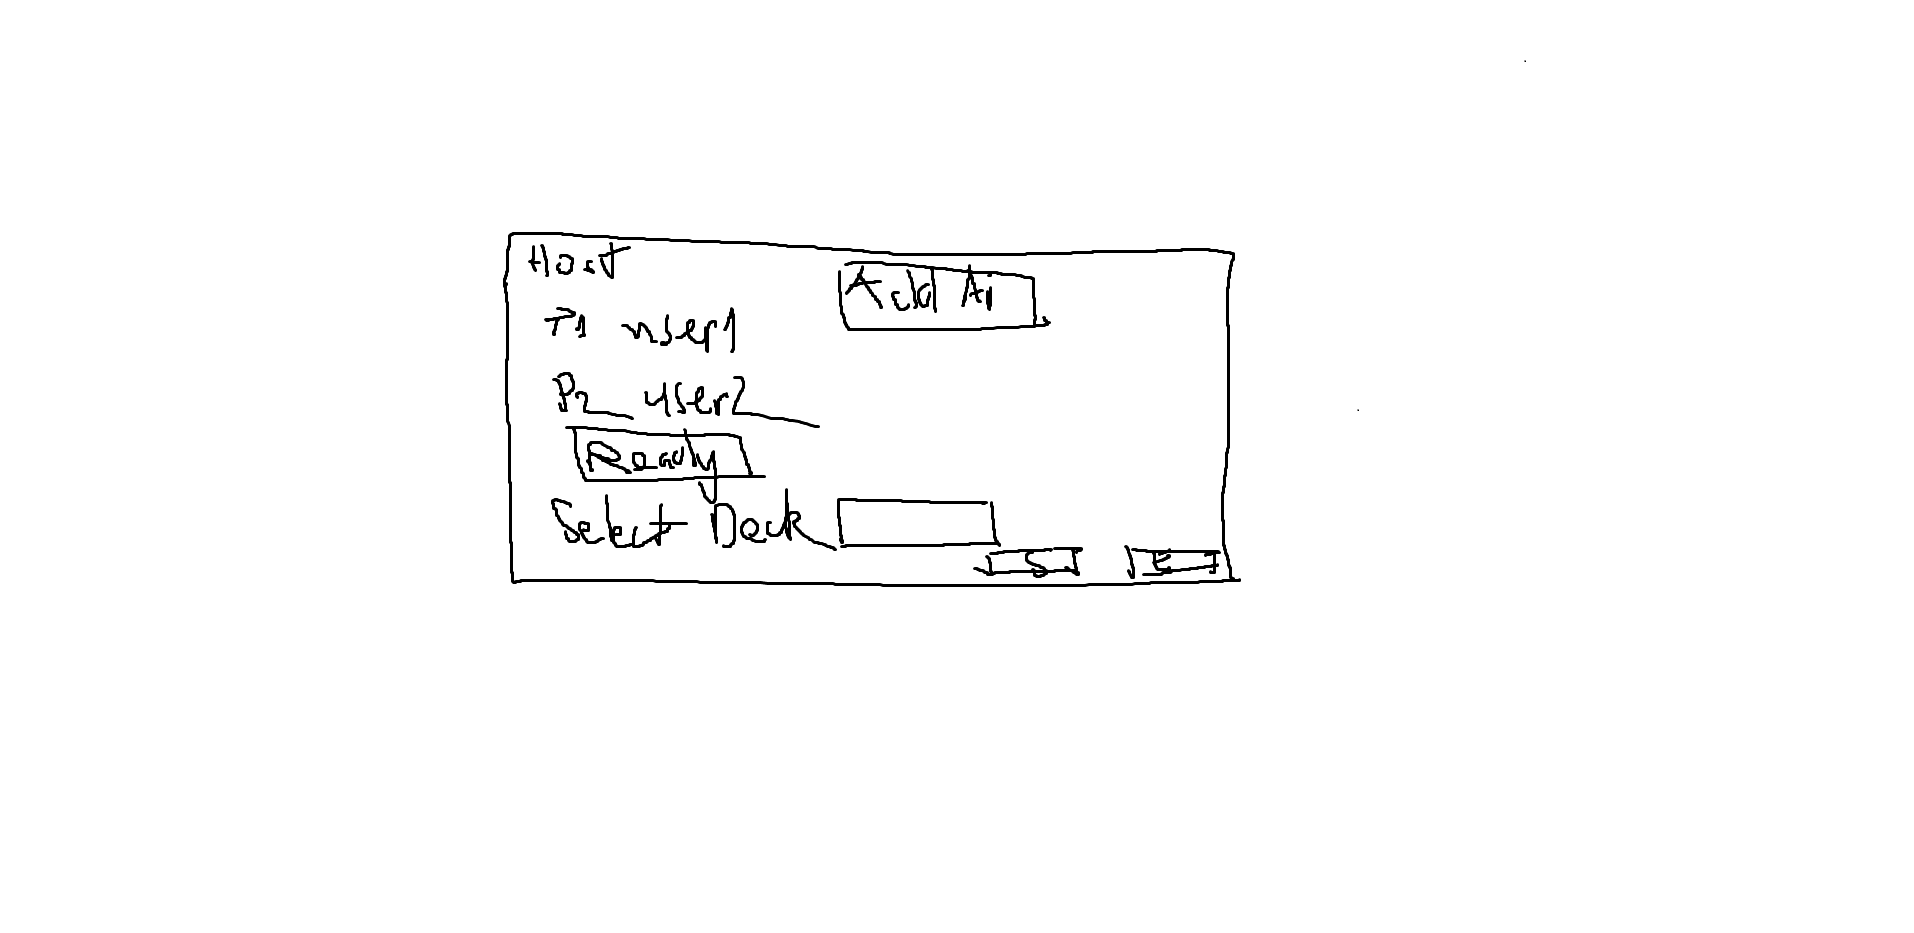 Host
Add Ai
P1 user1
P2 user2
Ready
Select Deck
S E